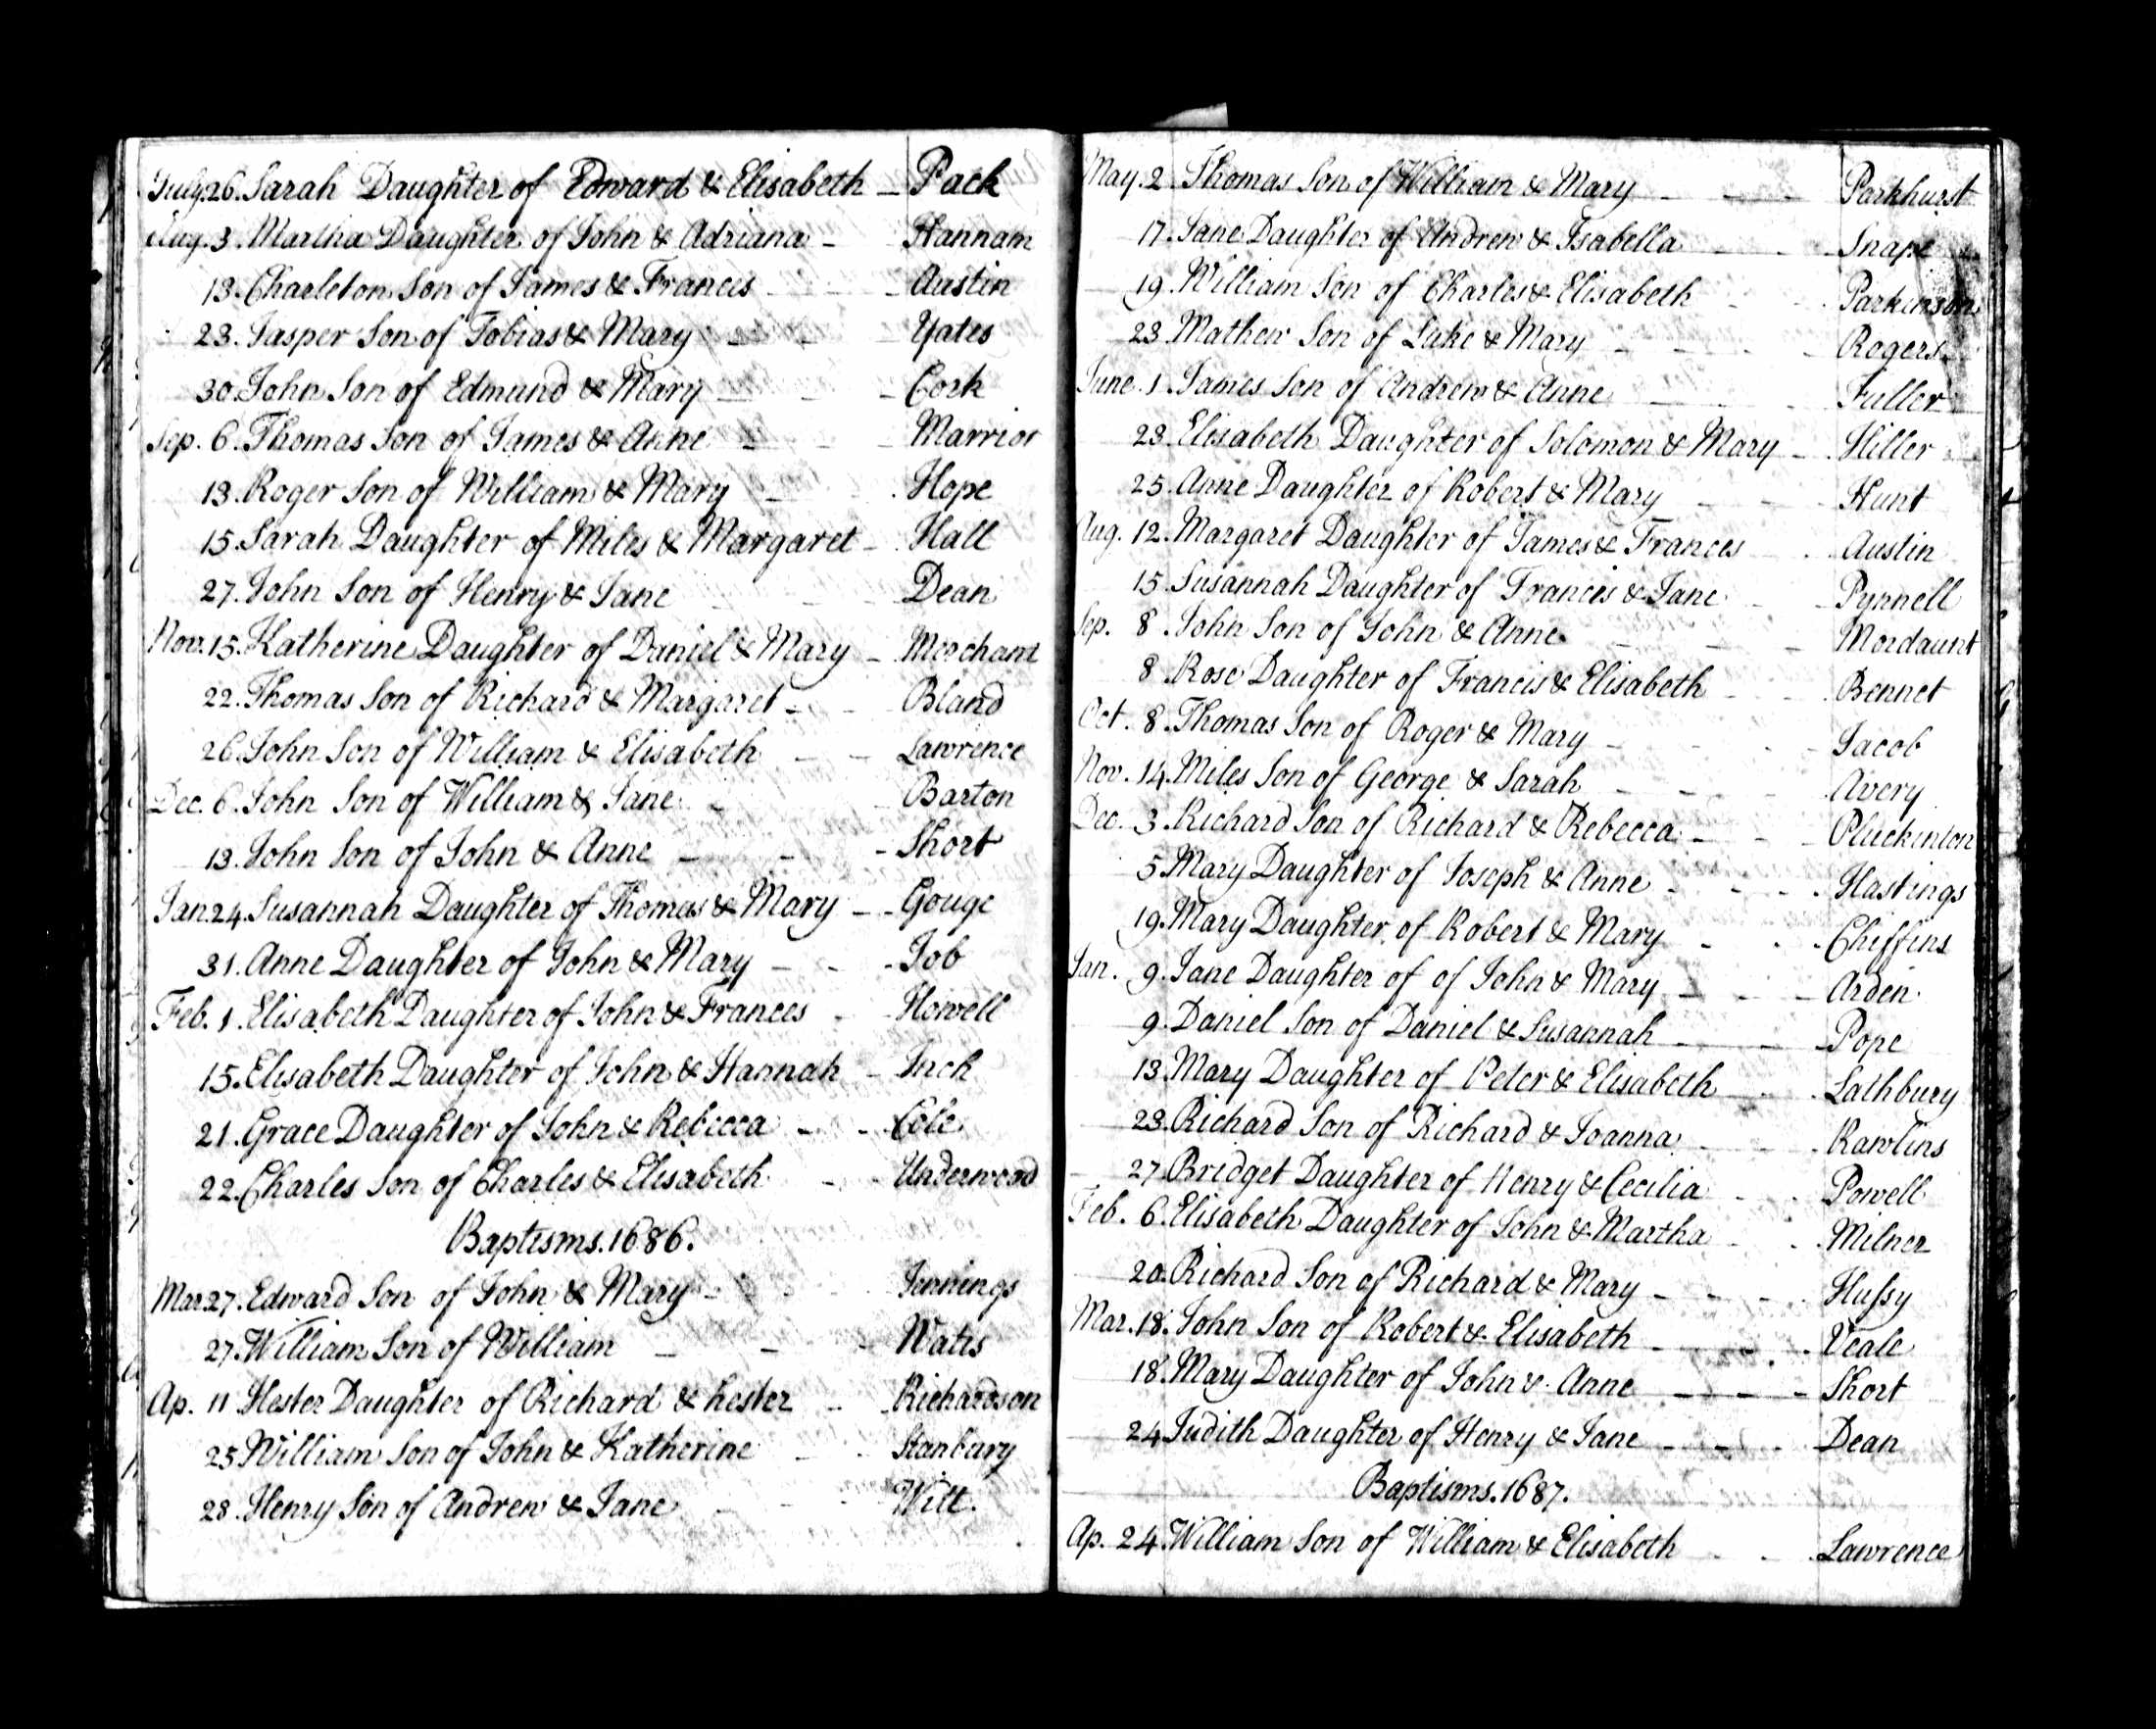 July.26. Sarah Daughter of Edward & Elisabeth Pack
Aug. 3. Martha Daughter of John & Adriana Hannam
13. Charleton Son of James & Francis Austin
23. Jasper Son of Tobias & Mary Yates
30. John Son of Edmund & Mary Cork
Sep. 6. Thomas Son of James & Anne Marrior
13. Roger Son of William & Mary Hope
15. Sarah Daughter of Miles & Margaret Hall
27. John Son of Henry & Jane Dean
Nov. 15. Katherine Daughter of Daniel & Mary Merchant
22. Thomas Son of Richard & Margaret Bland
26. John Son of William & Elisabeth Lawrence
Dec. 6. John Son of William & Jane Barton
13. John Son of John & Anne Short
Jan. 24. Susannah Daughter of Thomas & Mary Gouge
31. Anne Daughter of John & Mary Job
Feb. 1. Elisabeth Daughter of John & Frances Howell
15. Elisabeth Daughter of John & Hannah Inch
21. Grace Daughter of John & Rebecca Cole
22. Charles Son of Charles & Elisabeth Underwood
Baptisms. 1686.
Mar. 27. Edward Son of John & Mary Jennings
27. William Son of William Watts
Ap. 11 Hester Daughter of Richard & hester Richardson
25 William Son of John & Katherine Stanbury
28. Henry Son of Andrew & Jane Witt.
May. 2. Thomas Son of William & Mary Parkhurst
17. Jane Daughter of Andrew & Isabella Snape
19. William Son of Charles & Elisabeth Parkinson
23 Mathew Son of Luke & Mary Rogers
June. 1. James Son of Andrew & Anne Fuller
23. Elisabeth Daughter of Solomon & Mary Hiller
25. Anne Daughter of Robert & Mary Hunt
Aug. 12. Margaret Daughter of James & Frances Austin
15. Susannah Daughter of Francis & Jane Pynnell
Sep. 8. John Son of John & Anne Mordaunt
8. Rose Daughter of Francis & Elisabeth Bennet
Oct. 8. Thomas Son of Roger & Mary Jacob
Nov. 14. Miles Son of George & Sarah Avery
Dec. 3. Richard Son of Richard & Rebecca Pluckinton
5. Mary Daughter of Joseph & Anne Hastings
19. Mary Daughter of Robert & Mary Chiffins
Jan. 9. Jane Daughter of of John & Mary Arden
9. Daniel Son of Daniel & Susannah Pope
13. Mary Daughter of Peter & Elisabeth Lathbury
23. Richard Son of Richard & Joanna Rawlins
27. Bridget Daughter of Henry & Cecilia Powell
Feb. 6. Elisabeth Daughter of John & Martha Milner
20. Richard Son of Richard & Mary Hussy
Mar. 18. John Son of Robert & Elisabeth Veale
18. Mary Daughter of John & Anne Short
24 Judith Daughter of Henry & Jane Dean
Baptisms. 1687.
Ap. 24. William Son of William & Elisabeth Lawrence